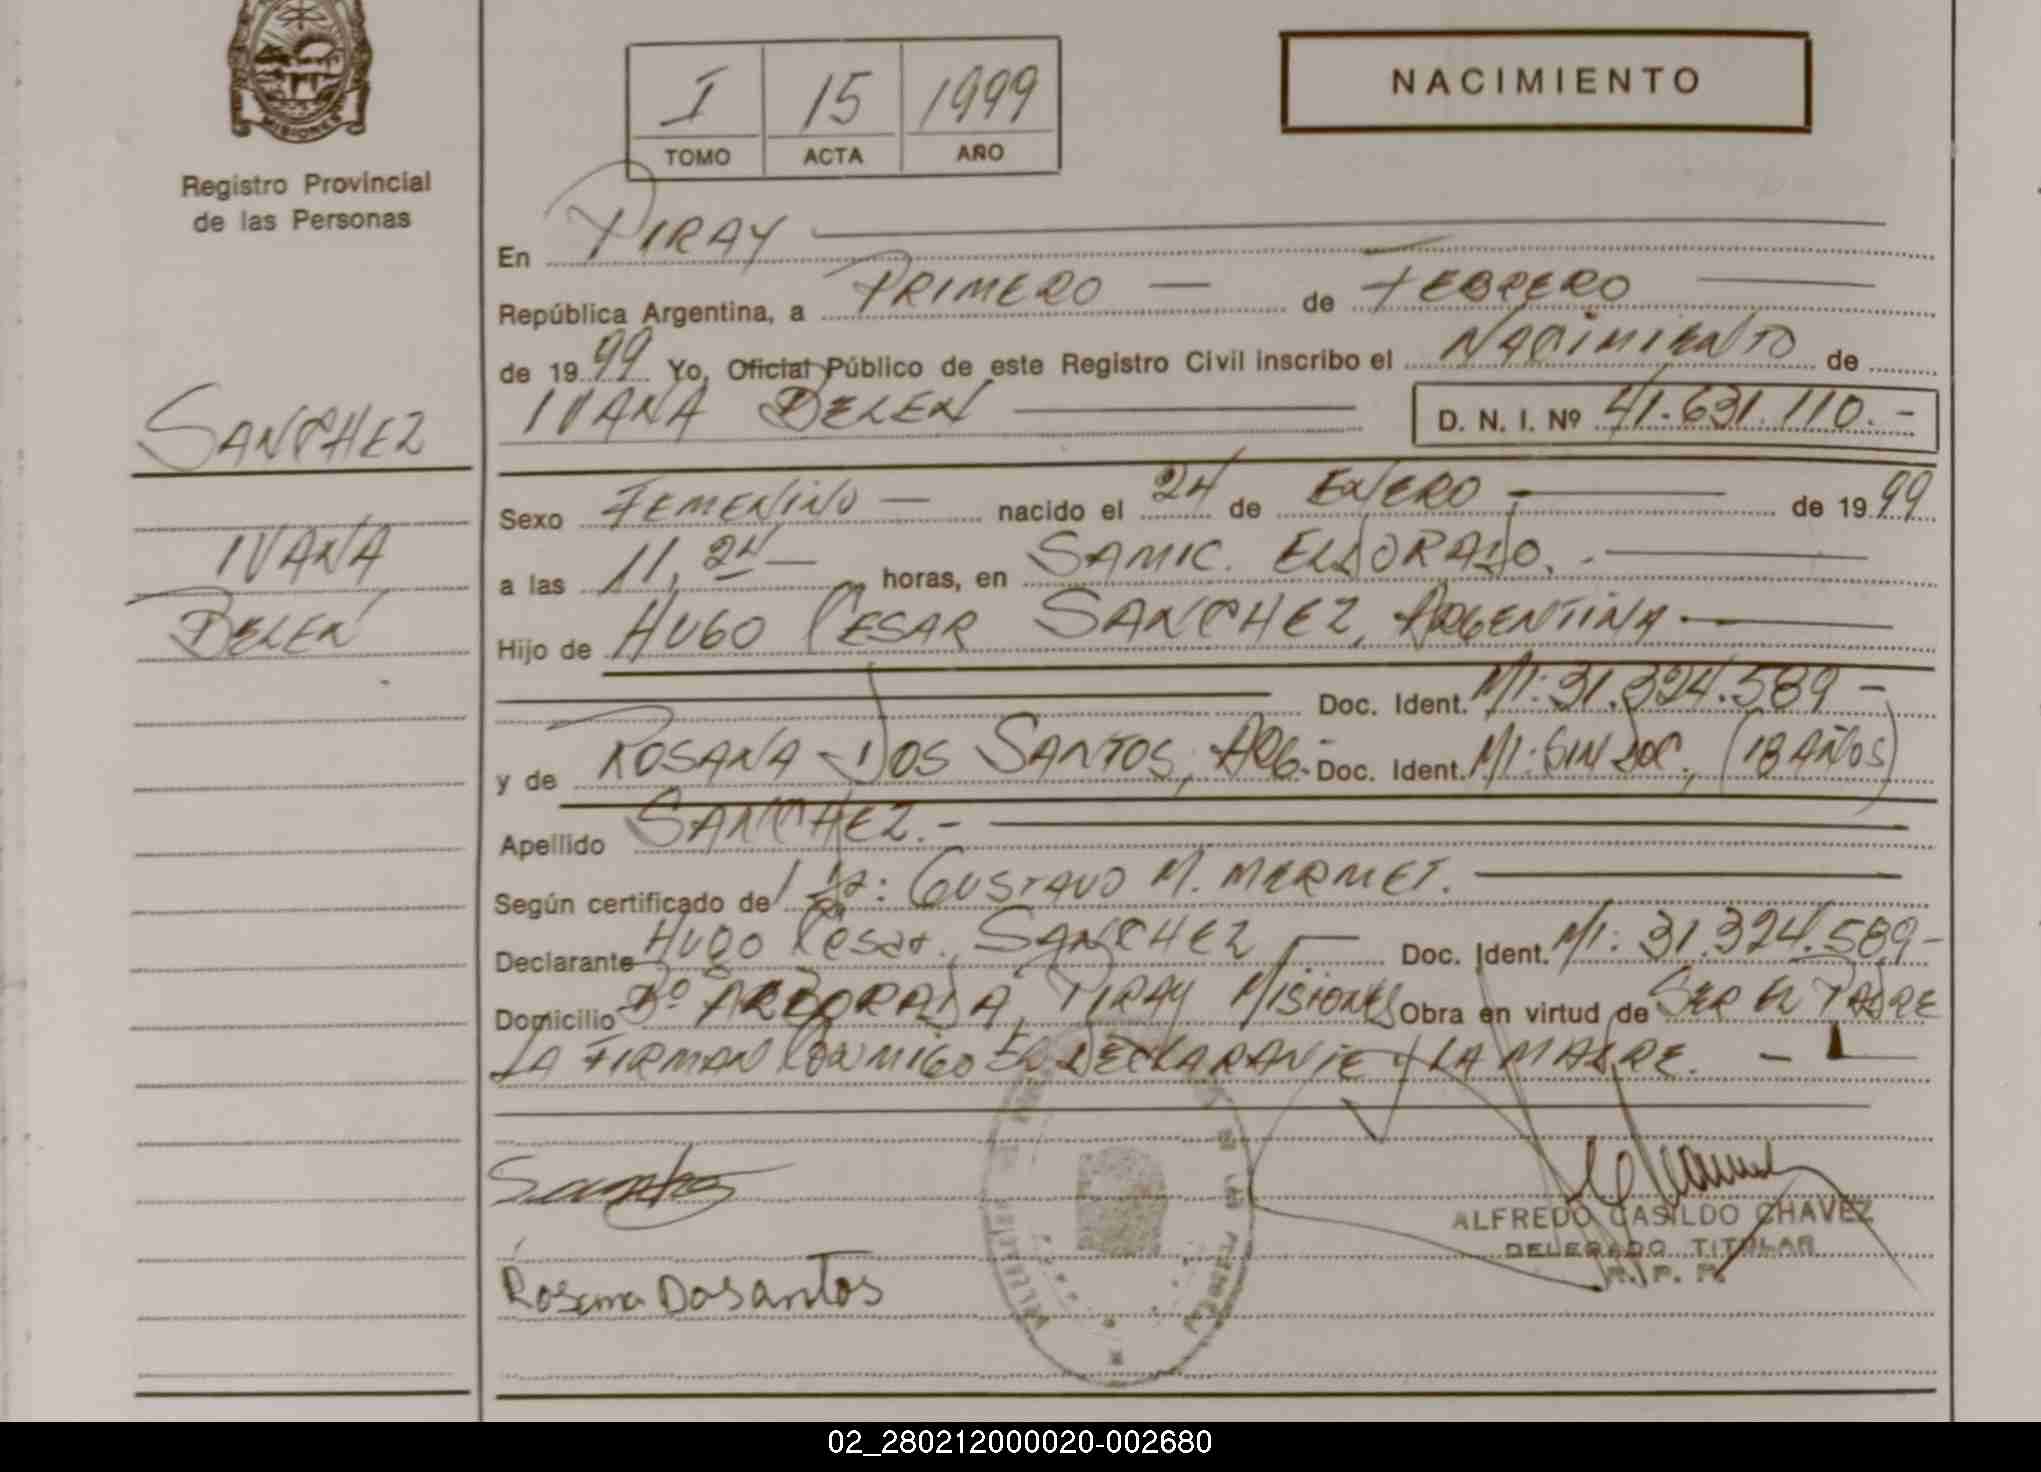 MISIONES
Registro Provincial
de las Personas
I 15 1999
TOMO ACTA AÑO
NACIMIENTO
En PIRAY
República Argentina, a PRIMERO de FEBRERO
de 1999 Yo, Oficial Público de este Registro Civil inscribo el NACIMIENTO de
IVANA BELEN D. N. I. Nº 41.631.110.-
SANCHEZ
IVANA
BELEN
Sexo FEMENINO nacido el 24 de ENERO de 1999
a las 11,24 horas, en SAMIC. ELDORADO.-
Hijo de HUGO CESAR SANCHEZ, ARGENTINA
Doc. Ident. MI: 31.324.589-
y de ROSANA DOS SANTOS, ARG.- Doc. Ident. MI: SIN DOC., (18 AÑOS)
Apellido SANCHEZ.-
Según certificado de GUSTAVO M. MERMET.
Declarante HUGO Cesar, SANCHEZ Doc. Ident. MI: 31.324.589-
Domicilio Bº ARBORADA, PIRAY MISIONES Obra en virtud de SER EL PADRE
LA FIRMAN CONMIGO EL DECLARANTE Y LA MADRE.-
ALFREDO CASILDO CHAVEZ
DELEGADO TITULAR
R. P. P.
Rosana Dosantos
02_280212000020-002680